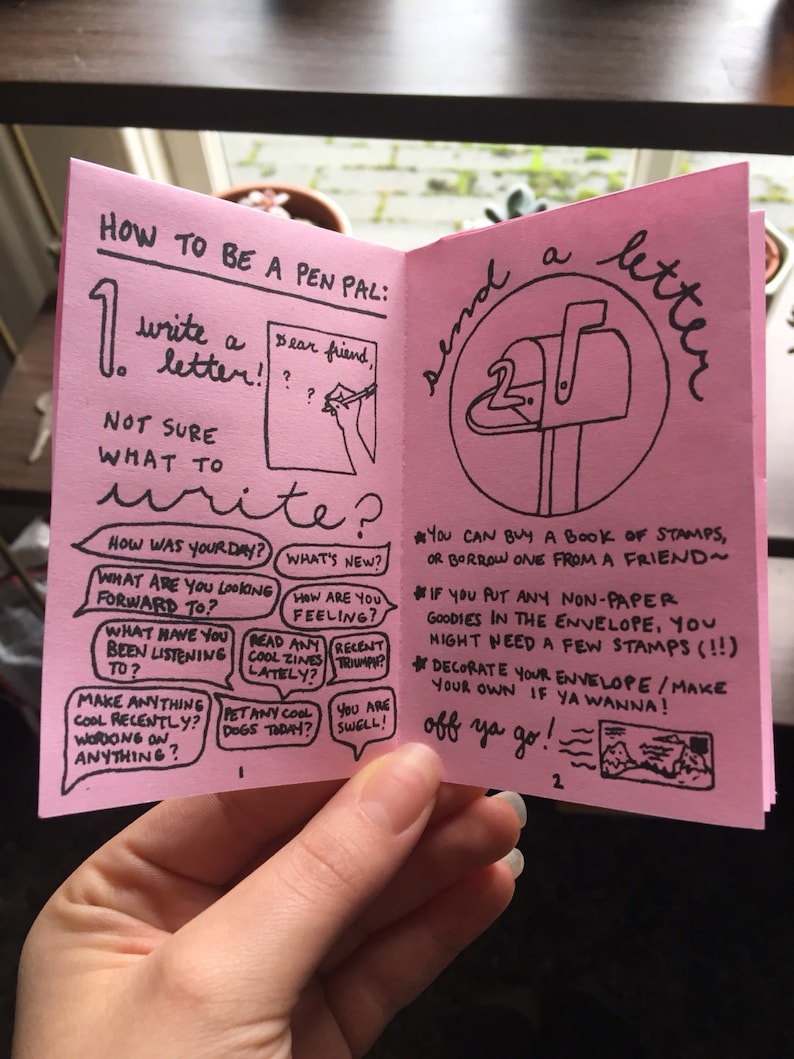 HOW TO BE A PEN PAL:
1. write a
letter!
Dear friend,
? ?
NOT SURE
WHAT TO
write?
HOW WAS YOUR DAY?
WHAT'S NEW?
WHAT ARE YOU LOOKING
FORWARD TO?
HOW ARE YOU
FEELING?
WHAT HAVE YOU
BEEN LISTENING
TO?
READ ANY
COOL ZINES
LATELY?
RECENT
TRIUMPH?
MAKE ANYTHING
COOL RECENTLY?
WORKING ON
ANYTHING?
PET ANY COOL
DOGS TODAY?
YOU ARE
SWELL!
1
send a letter
2
* YOU CAN BUY A BOOK OF STAMPS,
OR BORROW ONE FROM A FRIEND~
* IF YOU PUT ANY NON-PAPER
GOODIES IN THE ENVELOPE, YOU
MIGHT NEED A FEW STAMPS (!!)
* DECORATE YOUR ENVELOPE/MAKE
YOUR OWN IF YA WANNA!
off ya go!
2